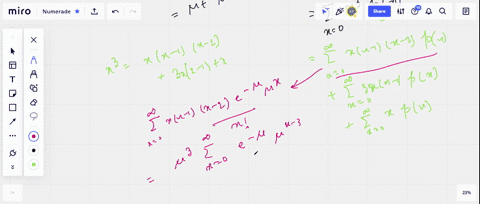 miro
Numerade
Share
= μ +
x=0
x³ = x(x-1)(x-2)
+ 3x(x-1) + x
= ∞ Σ x=0 x(x-1)(x-2) p(x)
+ ∞ Σ x=0 3x(x-1) p(x)
+ ∞ Σ x=0 x p(x)
∞ Σ x=0 x(x-1)(x-2) e^-μ μ^x
x!
= μ³ ∞ Σ x=0 e^-μ μ^x-3
23%